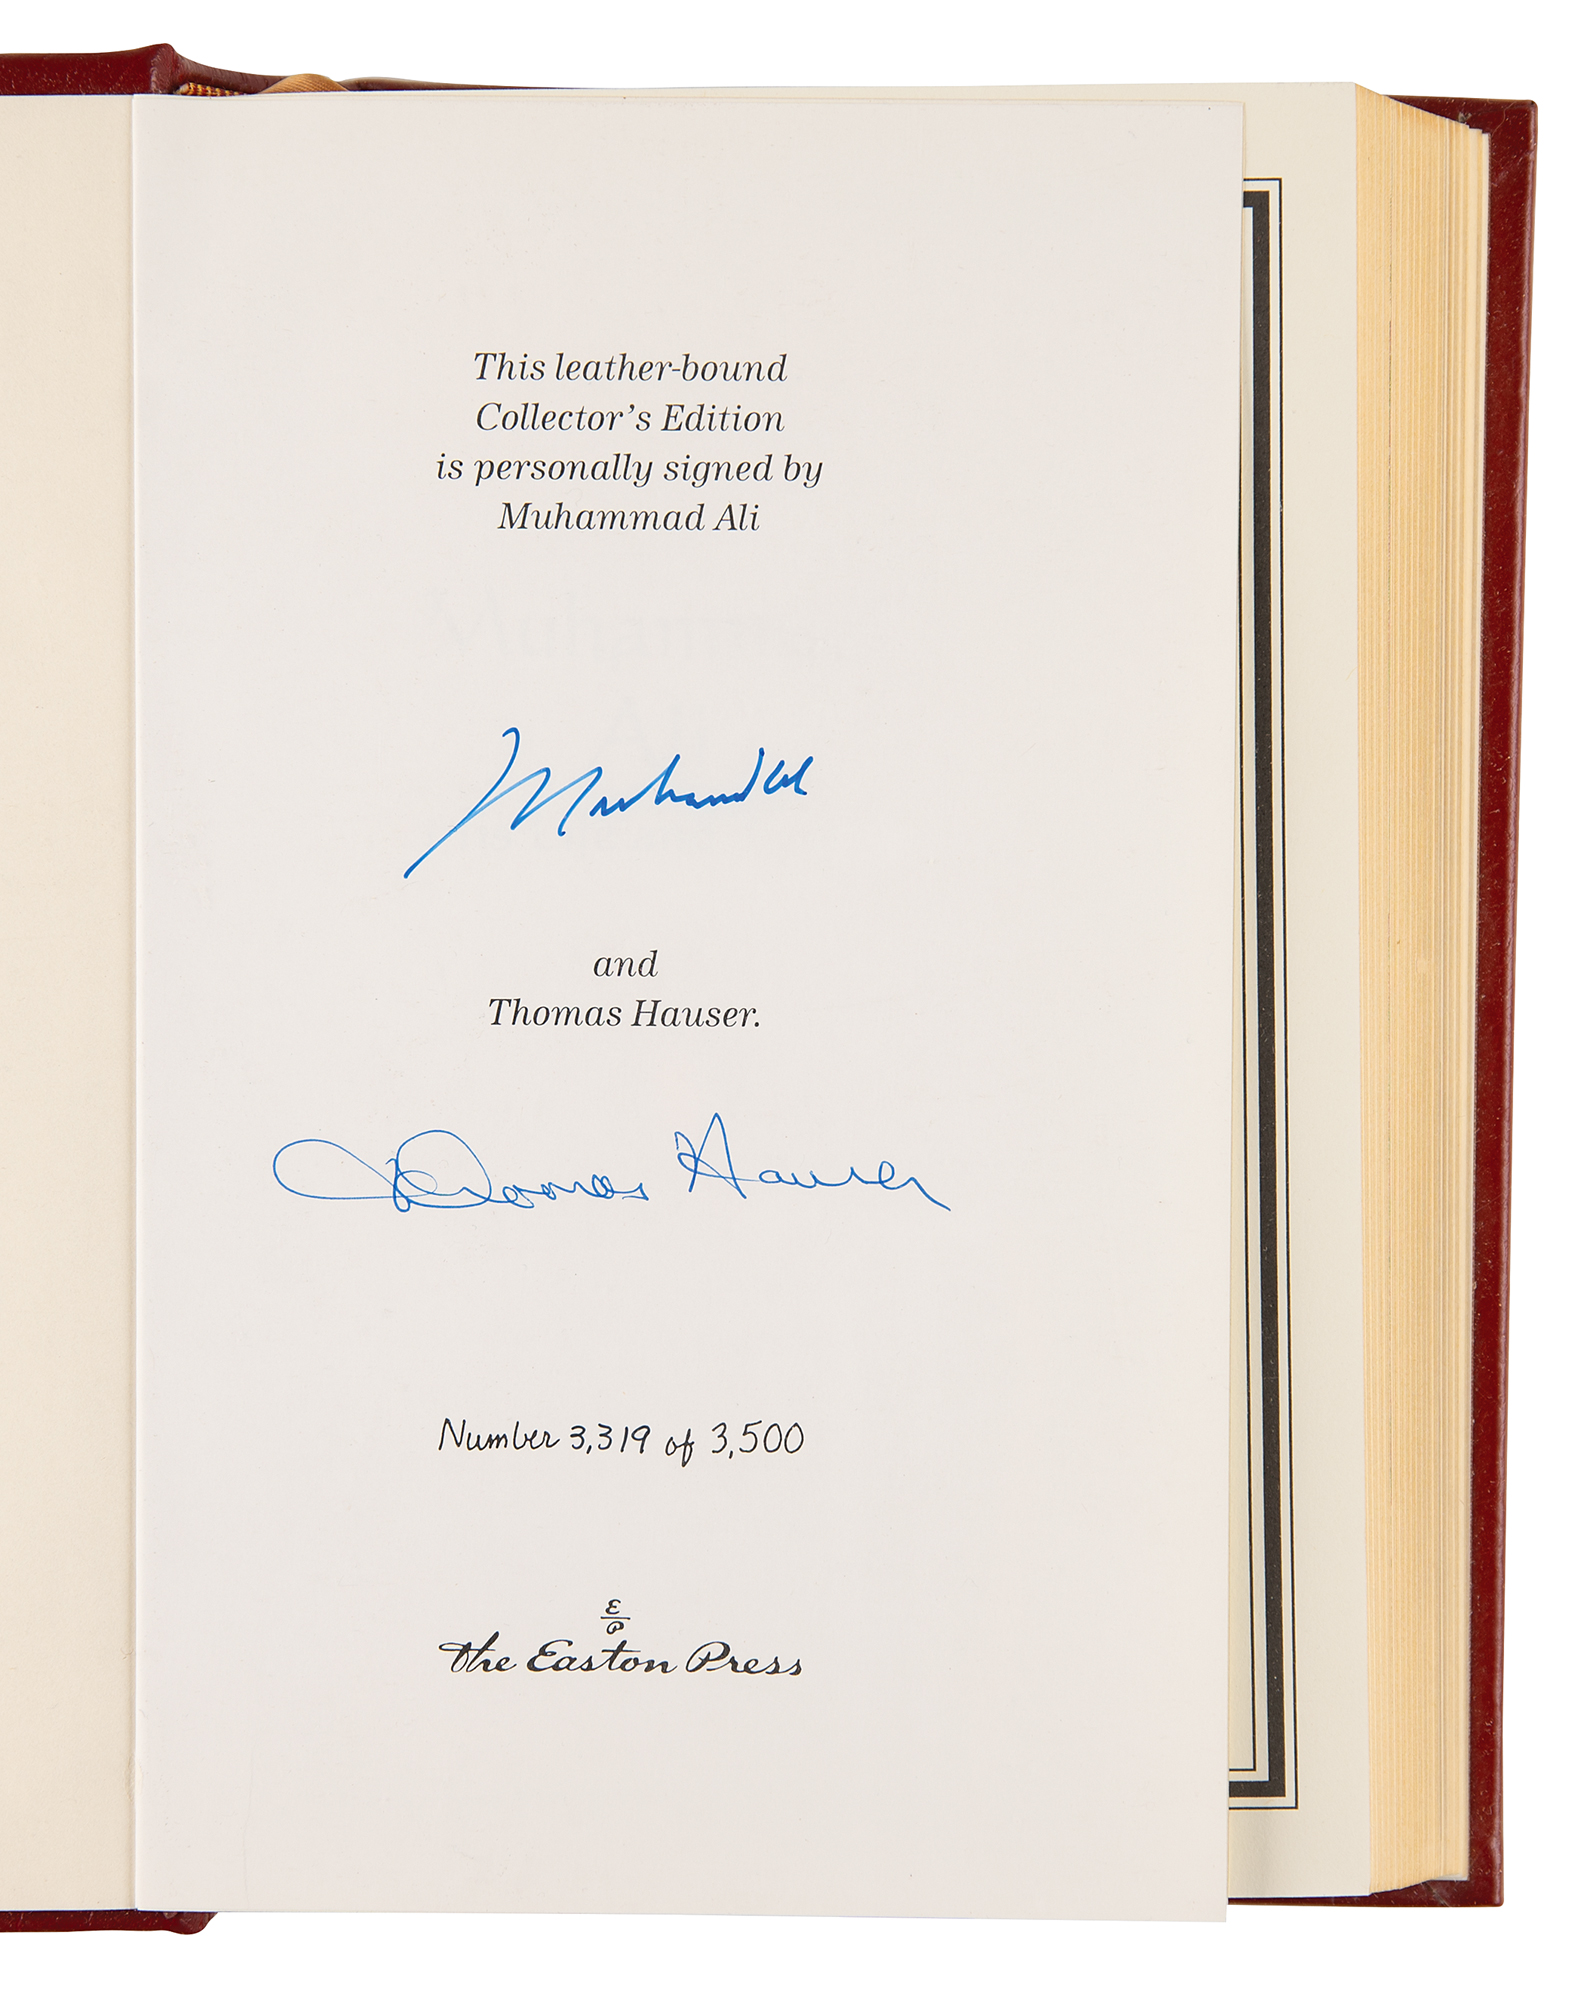 This leather-bound
Collector's Edition
is personally signed by
Muhammad Ali
Muhammad Ali
and
Thomas Hauser.
Thomas Hauser
Number 3,319 of 3,500
E
P
The Easton Press